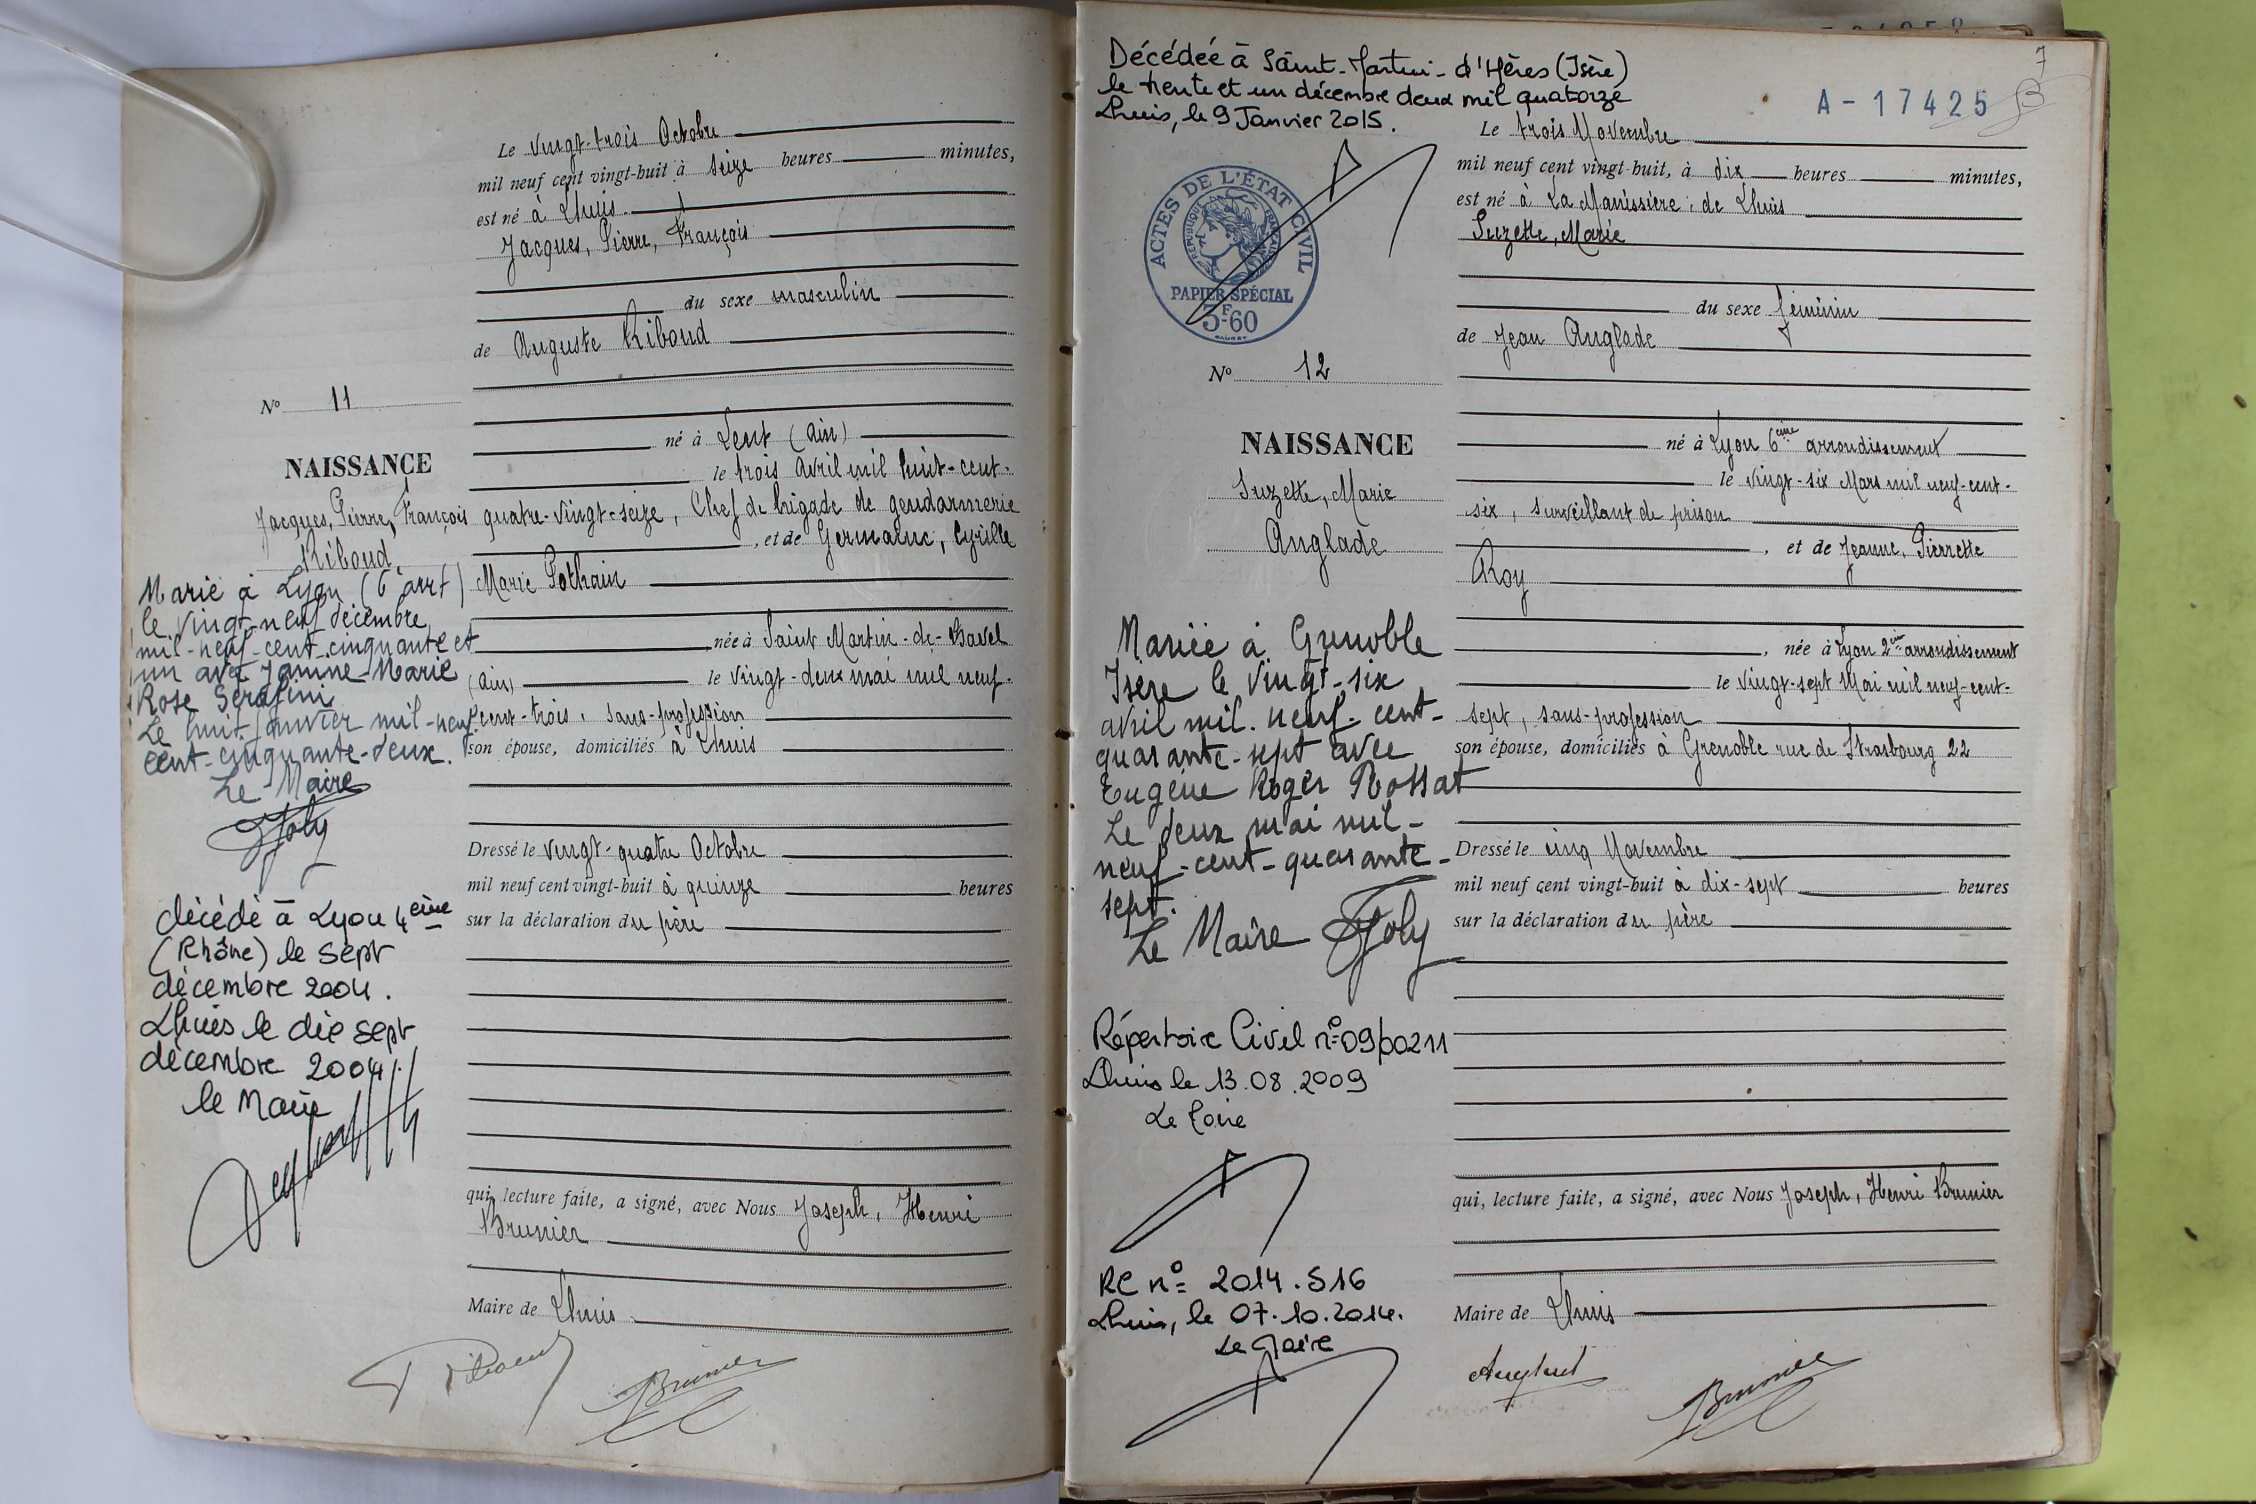 Le vingt-trois Octobre
mil neuf cent vingt-huit à seize heures minutes,
est né à Lhuis
Jacques, Pierre, François
du sexe masculin
de Auguste Riboud
né à Lent (Ain)
le trois Avril mil huit-cent-
quatre-vingt-seize, Chef de brigade de gendarmerie
, et de Germaine, Cyrille
Marie Pothain
née à Saint Martin-de-Bavel
(Ain) le vingt-deux mai mil neuf-
cent-trois, sans-profession
son épouse, domiciliés à Lhuis
Dressé le vingt-quatre Octobre
mil neuf cent vingt-huit à quinze heures
sur la déclaration du père
qui, lecture faite, a signé, avec Nous Joseph, Henri
Brunier
Maire de Lhuis
Riboud
Brunier
No 11
NAISSANCE
Jacques, Pierre, François
Riboud
Marié à Lyon (6 arrt)
le vingt-neuf décembre
mil-neuf-cent-cinquante et
un avec Janine-Marie
Rose Serafini
Le huit Janvier mil-neuf-
cent-cinquante-deux.
Le Maire
Joly
décédé à Lyon 4ème
(Rhône) le sept
décembre 2004.
Lhuis le dix sept
décembre 2004.
le Maire
Décédée à Saint-Martin-d'Hères (Isère)
le trente et un décembre deux mil quatorze
Lhuis, le 9 Janvier 2015.
7
A-17425
ACTES DE L'ÉTAT CIVIL
RÉPUBLIQUE FRANÇAISE
PAPIER SPÉCIAL
3F60
No 12
NAISSANCE
Suzette, Marie
Anglade
Mariée à Grenoble
Isère le vingt-six
avril mil. neuf-cent-
quarante-sept avec
Eugène Roger Rossat
Le deux mai mil-
neuf-cent-quarante-
sept.
Le Maire Joly
Répertoire Civil n° 09/00211
Lhuis le 13.08.2009
Le Maire
RC n° 2014.516
Lhuis, le 07.10.2014.
Le Maire
Le trois Novembre
mil neuf cent vingt-huit, à dix heures minutes,
est né à La Manissière, de Lhuis
Suzette, Marie
du sexe féminin
de Jean Anglade
né à Lyon 6ème arrondissement
le vingt-six Mars mil neuf-cent-
six, surveillant de prison
, et de Jeanne, Pierrette
Roy
, née à Lyon 2me arrondissement
le vingt-sept Mai mil neuf-cent-
sept, sans-profession
son épouse, domiciliés à Grenoble rue de Strasbourg 22
Dressé le cinq Novembre
mil neuf cent vingt-huit à dix-sept heures
sur la déclaration du père
qui, lecture faite, a signé, avec Nous Joseph, Henri Brunier
Maire de Lhuis
Anglade
Brunier